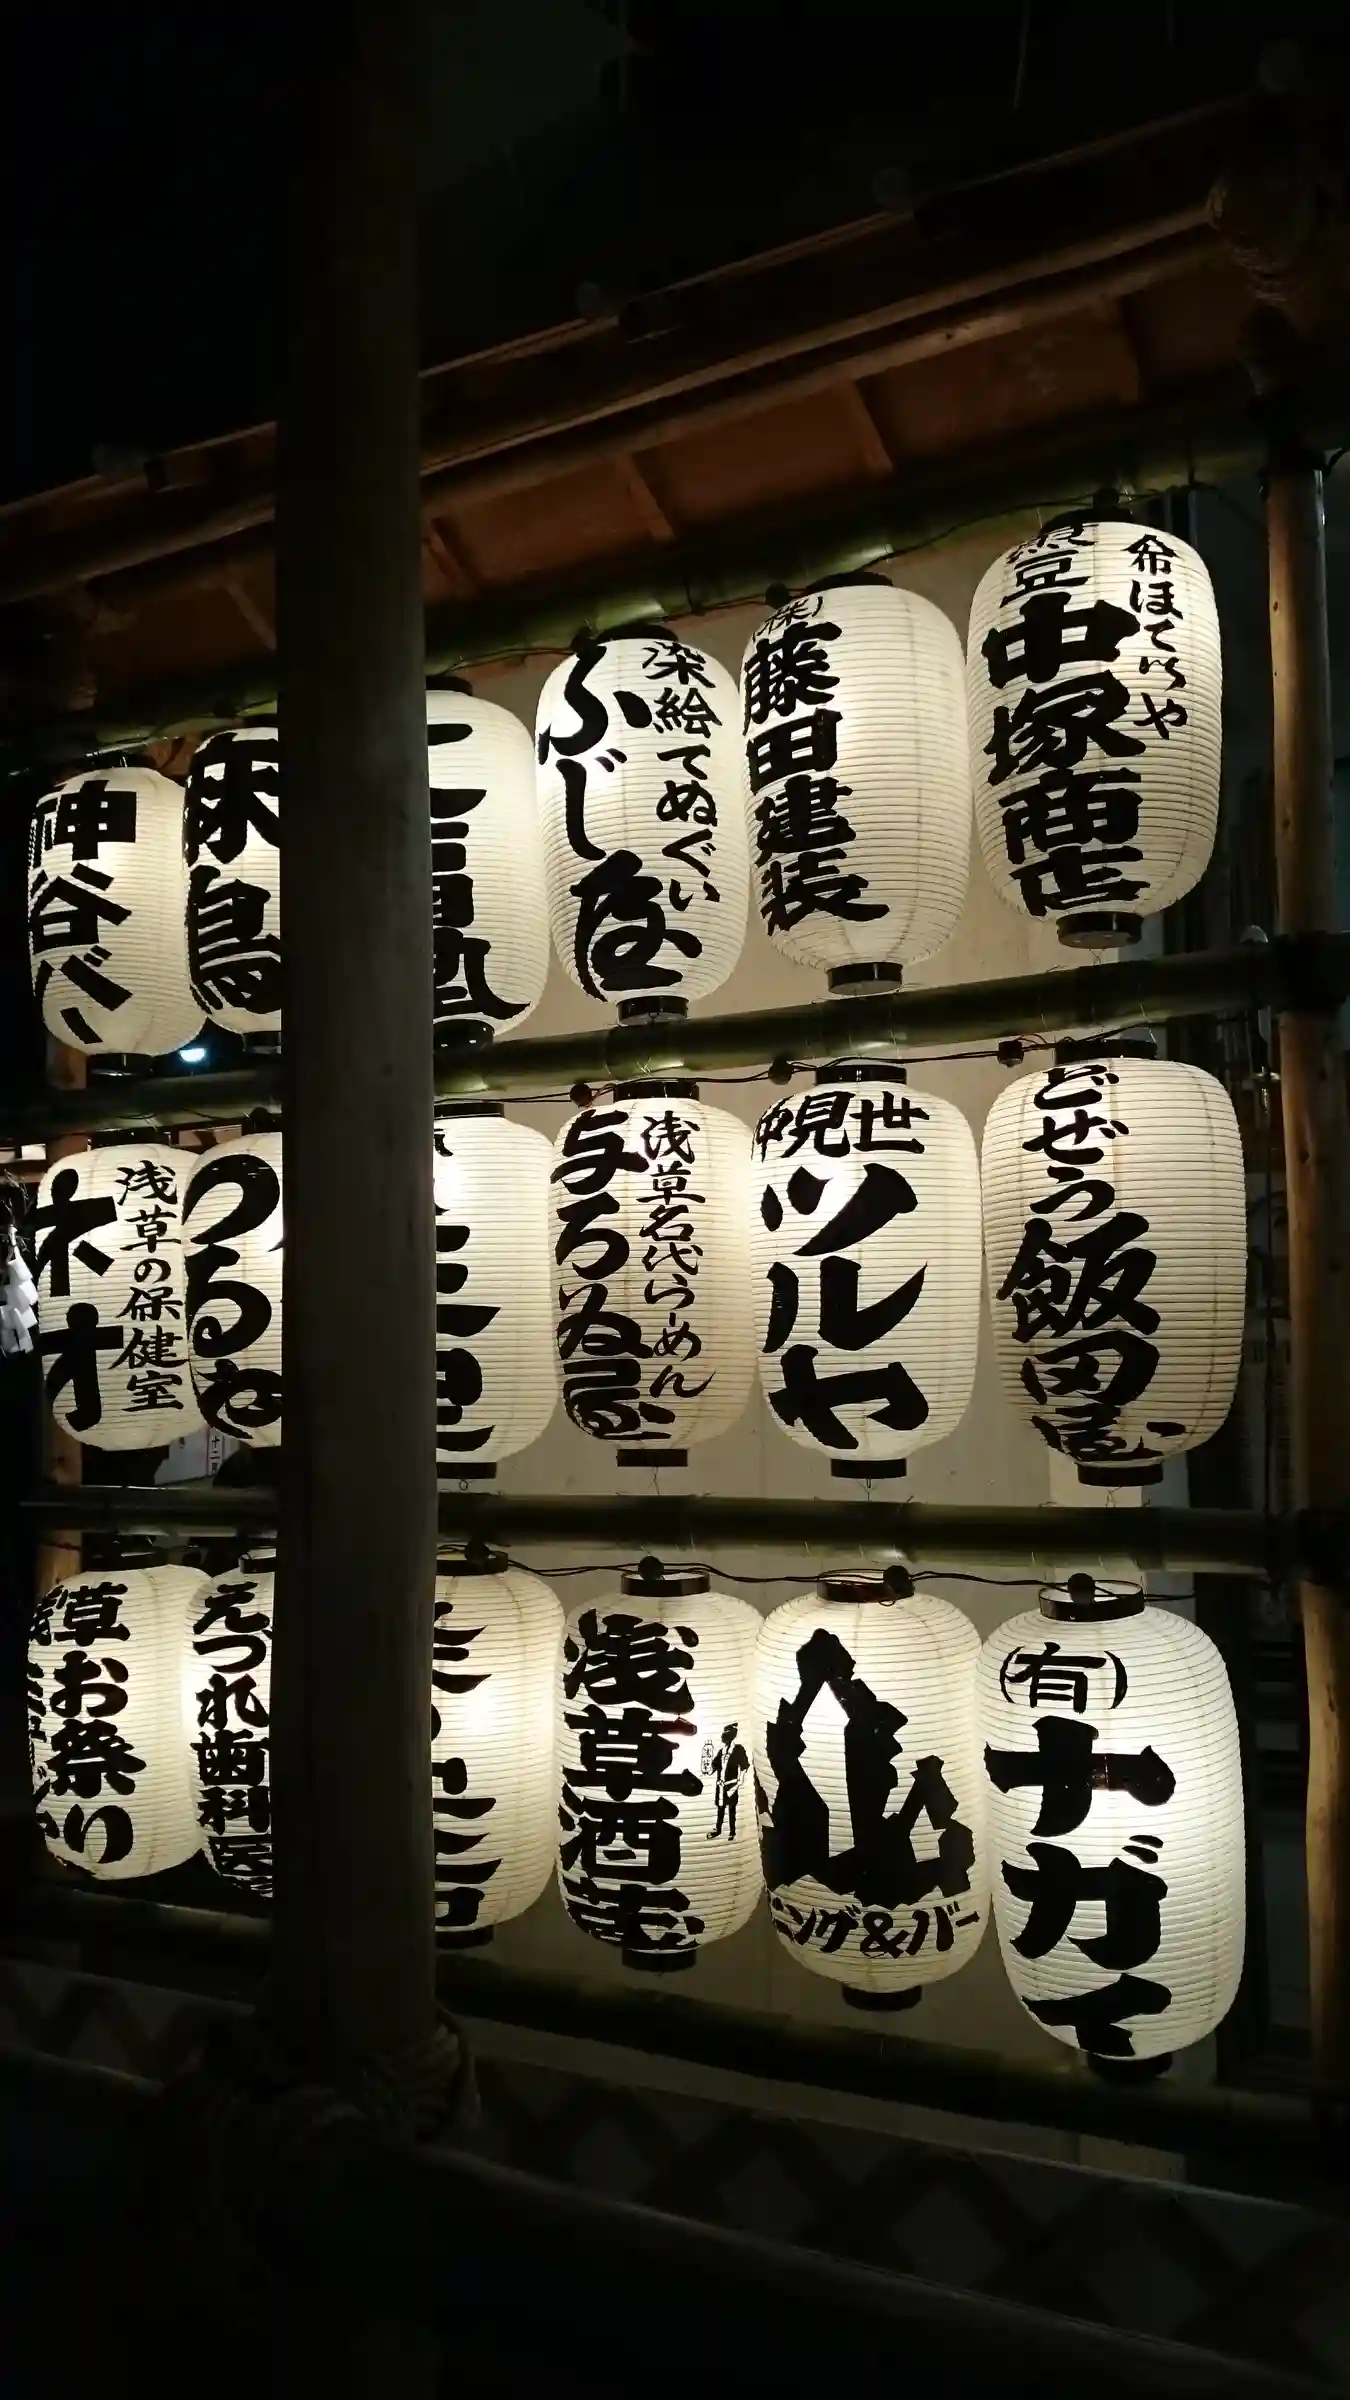 煮豆
中塚商店
布ほていや
(株)
藤田建装
染絵てぬぐい
ふじ屋
神谷バー
どぜう
飯田屋
仲見世
ツルヤ
浅草名代らーめん
与ろゐ屋
つるや
浅草の保健室
ネオ
(有)
ナガイ
ング&バー
浅草酒蔵
えづれ歯科医
浅草お祭り